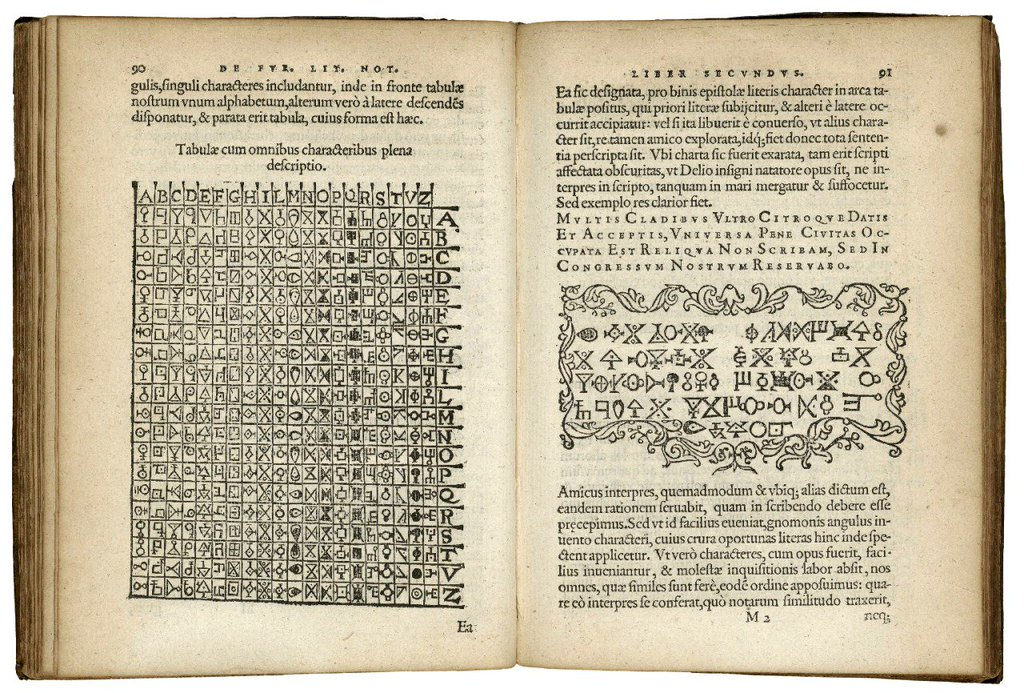 90 DE FVR. LIT. NOT.
gulis, singuli characteres includantur, inde in fronte tabulæ
nostrum vnum alphabetum, alterum verò à latere descendēs
disponatur, & parata erit tabula, cuius forma est hæc.
Tabulæ cum omnibus characteribus plena
descriptio.
A B C D E F G H I L M N O P Q R S T V Z
A
B
C
D
E
F
G
H
I
L
M
N
O
P
Q
R
S
T
V
Z
Ea
LIBER SECVNDVS. 91
Ea sic designata, pro binis epistolæ literis character in arca ta-
bulæ positus, qui priori literæ subijcitur, & alteri è latere oc-
currit accipiatur: vel si ita libuerit è conuerso, vt alius chara-
cter sit, re tamen amico explorata, idq; fiet donec tota senten-
tia perscripta sit. Vbi charta sic fuerit exarata, tam erit scripti
affectata obscuritas, vt Delio insigni natatore opus sit, ne in-
terpres in scripto, tanquam in mari mergatur & suffocetur.
Sed exemplo res clarior fiet.
MVLTIS CLADIBVS VLTRO CITROQVE DATIS
ET ACCEPTIS, VNIVERSA PENE CIVITAS OC-
CVPATA EST RELIQVA NON SCRIBAM, SED IN
CONGRESSVM NOSTRVM RESERVABO.
Amicus interpres, quemadmodum & vbiq; alias dictum est,
eandem rationem seruabit, quam in scribendo debere esse
pręcepimus. Sed vt id facilius eueniat, gnomonis angulus in-
uento characteri, cuius crura oportunas literas hinc inde spe-
ctent applicetur. Vt verò characteres, cum opus fuerit, faci-
lius inueniantur, & molestæ inquisitionis labor absit, nos
omnes, quæ similes sunt ferè, eodē ordine apposuimus: qua-
re eò interpres se conferat, quò notarum similitudo traxerit,
M 2 neq;